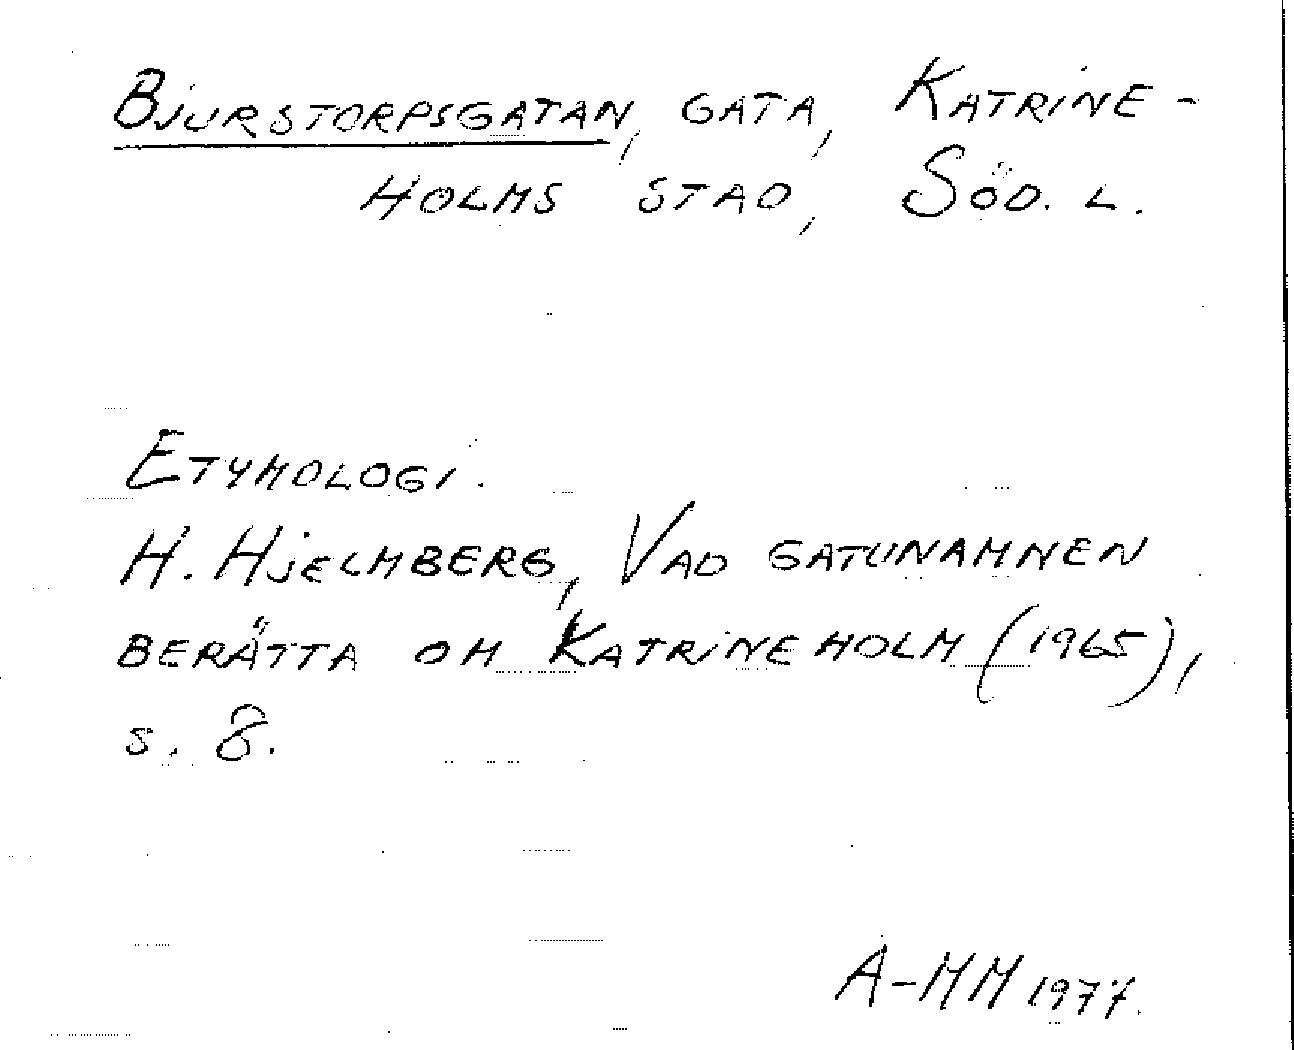 Bjurstorpsgatan, gata, Katrine-
holms stad, Söd. l.
Etymologi.
H. Hjelmberg, Vad gatunamnen
berätta om Katrineholm (1965),
s. 8.
A-MM 1977.